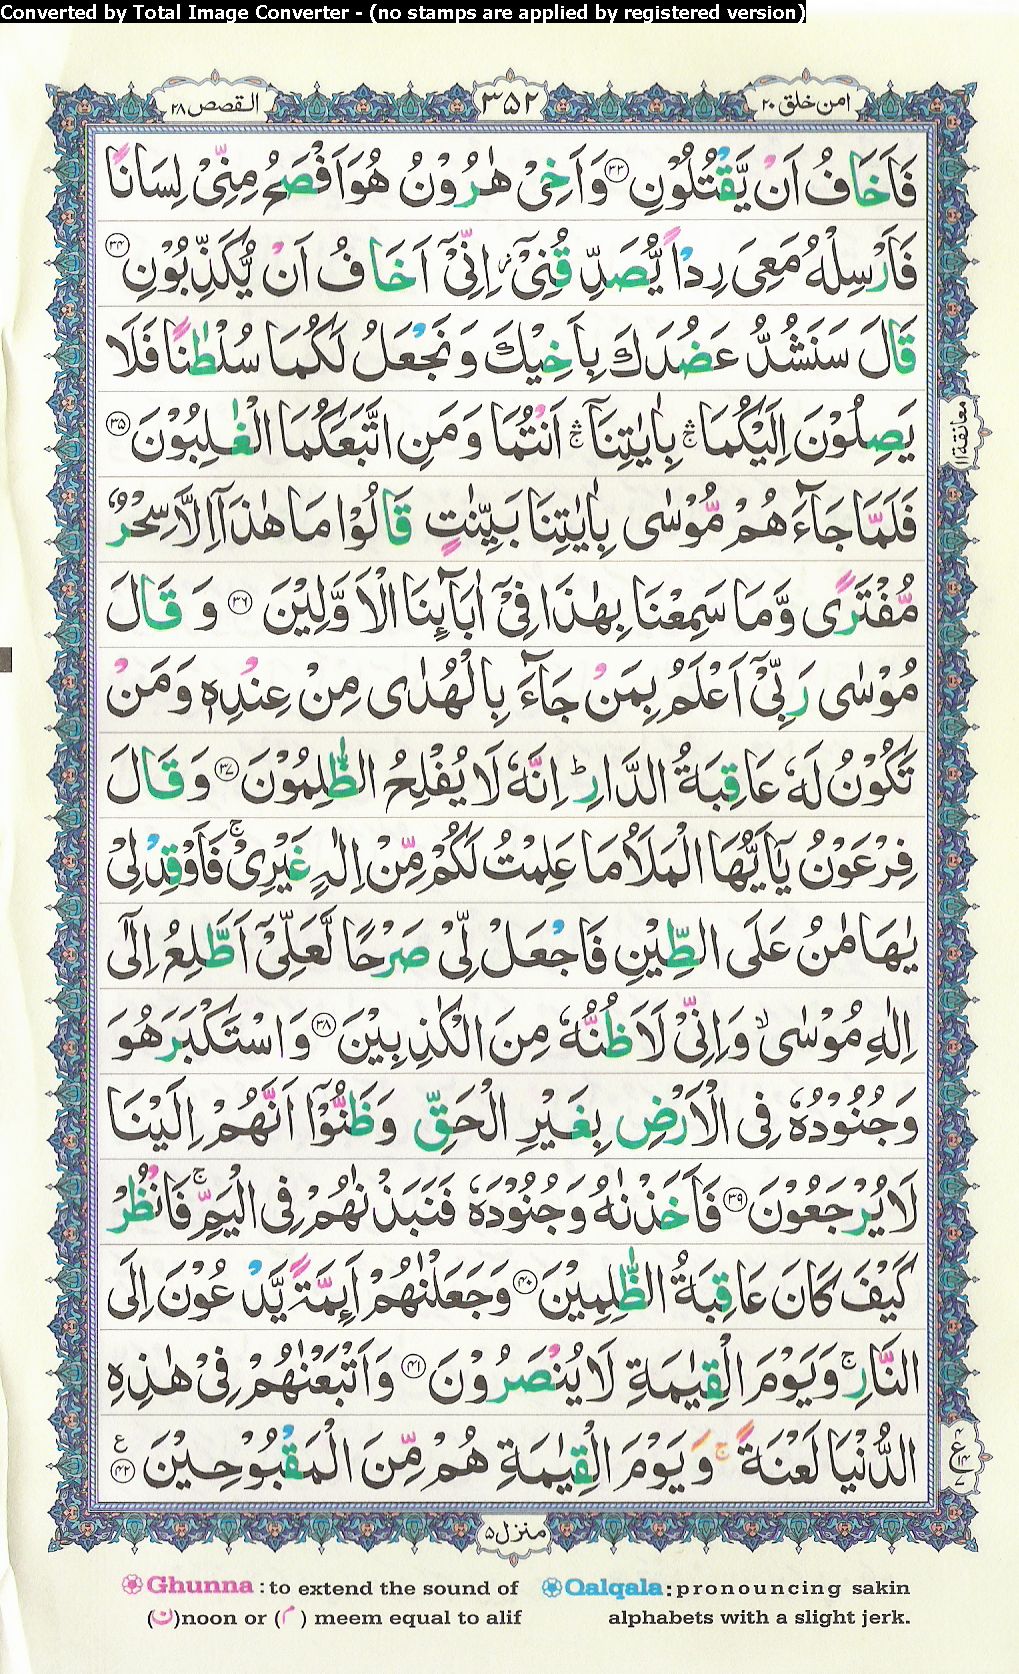 Converted by Total Image Converter - (no stamps are applied by registered version)
امن خلق ۲۰
۳۵۲
القصص ۲۸
فَاَخَافُ اَنْ يَّقْتُلُوْنِ ۳۳ وَاَخِىْ هٰرُوْنُ هُوَ اَفْصَحُ مِنِّىْ لِسَانًا
فَاَرْسِلْهُ مَعِىَ رِدْاً يُّصَدِّقُنِىْٓ ز اِنِّىْٓ اَخَافُ اَنْ يُّكَذِّبُوْنِ ۳۴
قَالَ سَنَشُدُّ عَضُدَكَ بِاَخِيْكَ وَنَجْعَلُ لَكُمَا سُلْطٰنًا فَلَا
يَصِلُوْنَ اِلَيْكُمَا ۛۚ بِاٰيٰتِنَآ ۛۚ اَنْتُمَا وَمَنِ اتَّبَعَكُمَا الْغٰلِبُوْنَ ۳۵
معانقة ۱۱
فَلَمَّا جَآءَهُمْ مُّوْسٰى بِاٰيٰتِنَا بَيِّنٰتٍ قَالُوْا مَا هٰذَآ اِلَّا سِحْرٌ
مُّفْتَرًى وَّمَا سَمِعْنَا بِهٰذَا فِىْٓ اٰبَآئِنَا الْاَوَّلِيْنَ ۳۶ وَقَالَ
مُوْسٰى رَبِّىْٓ اَعْلَمُ بِمَنْ جَآءَ بِالْهُدٰى مِنْ عِنْدِهٖ وَمَنْ
تَكُوْنُ لَهٗ عَاقِبَةُ الدَّارِ ؕ اِنَّهٗ لَا يُفْلِحُ الظّٰلِمُوْنَ ۳۷ وَقَالَ
فِرْعَوْنُ يٰٓاَيُّهَا الْمَلَاُ مَا عَلِمْتُ لَكُمْ مِّنْ اِلٰهٍ غَيْرِىْ ۚ فَاَوْقِدْ لِىْ
يٰهَامٰنُ عَلَى الطِّيْنِ فَاجْعَلْ لِّىْ صَرْحًا لَّعَلِّىْٓ اَطَّلِعُ اِلٰٓى
اِلٰهِ مُوْسٰى ۙ وَاِنِّىْ لَاَظُنُّهٗ مِنَ الْكٰذِبِيْنَ ۳۸ وَاسْتَكْبَرَ هُوَ
وَجُنُوْدُهٗ فِى الْاَرْضِ بِغَيْرِ الْحَقِّ وَظَنُّوْٓا اَنَّهُمْ اِلَيْنَا
لَا يُرْجَعُوْنَ ۳۹ فَاَخَذْنٰهُ وَجُنُوْدَهٗ فَنَبَذْنٰهُمْ فِى الْيَمِّ ۚ فَانْظُرْ
كَيْفَ كَانَ عَاقِبَةُ الظّٰلِمِيْنَ ۴۰ وَجَعَلْنٰهُمْ اَئِمَّةً يَّدْعُوْنَ اِلَى
النَّارِ ۚ وَيَوْمَ الْقِيٰمَةِ لَا يُنْصَرُوْنَ ۴۱ وَاَتْبَعْنٰهُمْ فِىْ هٰذِهِ
الدُّنْيَا لَعْنَةً ۚ وَيَوْمَ الْقِيٰمَةِ هُمْ مِّنَ الْمَقْبُوْحِيْنَ ۴۲ ع
منزل ۵
Ghunna : to extend the sound of
(ن)noon or (م) meem equal to alif
Qalqala : pronouncing sakin
alphabets with a slight jerk.